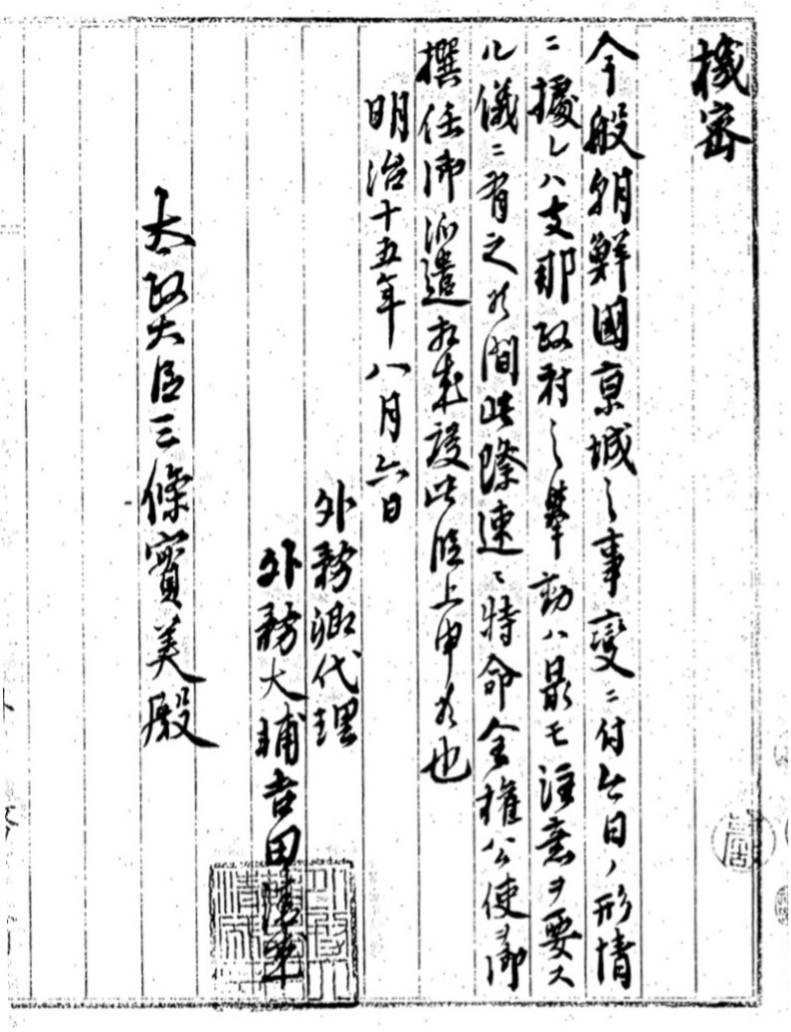 機密
今般朝鮮國京城之事變ニ付今日ノ形情
ニ據レハ支那政府之擧動ハ最モ注意ヲ要ス
ル儀ニ有之候間此際速ニ特命全權公使ヲ御
撰任御派遣相成度此段上申候也
明治十五年八月六日
外務卿代理
外務大輔吉田清成
太政大臣三條實美殿